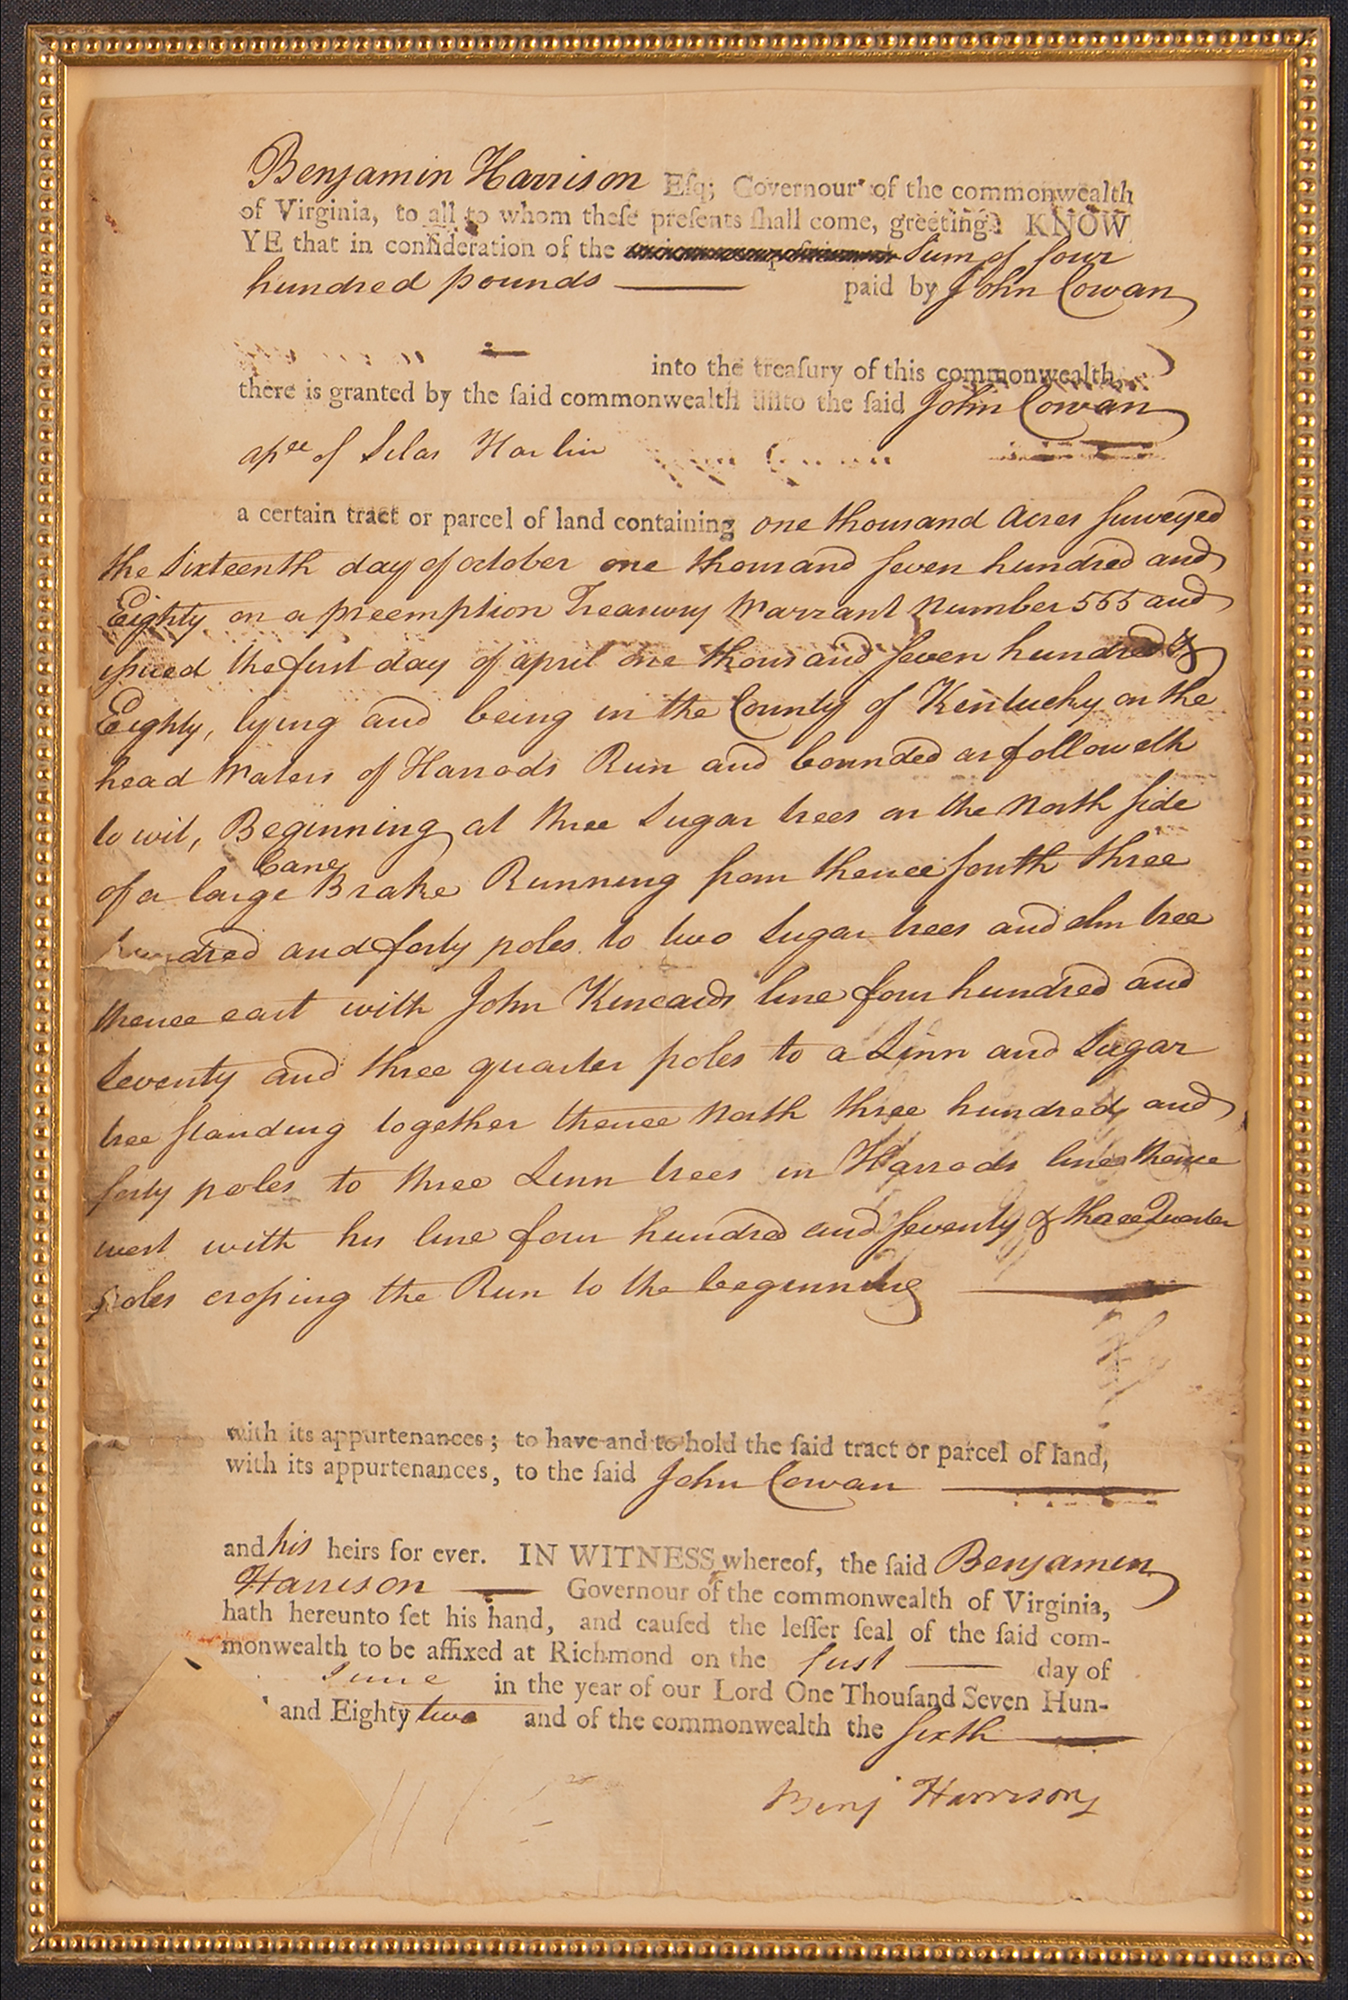 Benjamin Harrison Eſq; Governour of the commonwealth
of Virginia, to all to whom theſe preſents ſhall come, greeting: KNOW
YE that in conſideration of the Sum of four
hundred pounds paid by John Cowan
into the treaſury of this commonwealth,
there is granted by the ſaid commonwealth unto the ſaid John Cowan
aſsee of Silas Harlin
a certain tract or parcel of land containing one thousand Acres Surveyed
the Sixteenth day of october one thousand Seven hundred and
Eighty on a preemption Treasury Warrant Number 555 and
iſsued the first day of april one thousand Seven hundred &
Eighty, lying and being in the County of Kentucky on the
head Waters of Harrods Run and bounded as followeth
to wit, Beginning at three Sugar trees on the North side
of a large Cane Brake Running from thence South three
hundred and forty poles to two Sugar trees and elm tree
thence east with John Kincaids line four hundred and
Seventy and three quarter poles to a Linn and Sugar
tree standing together thence North three hundred and
forty poles to three Linn trees in Harrods line thence
west with his line four hundred and Seventy & three Quarter
poles croſsing the Run to the beginning
with its appurtenances; to have and to hold the ſaid tract or parcel of land,
with its appurtenances, to the ſaid John Cowan
and his heirs for ever. IN WITNESS whereof, the ſaid Benjamin
Harrison Governour of the commonwealth of Virginia,
hath hereunto ſet his hand, and cauſed the leſſer ſeal of the ſaid com-
monwealth to be affixed at Richmond on the first day of
June in the year of our Lord One Thouſand Seven Hun-
and Eighty two and of the commonwealth the Sixth
Benj Harrison